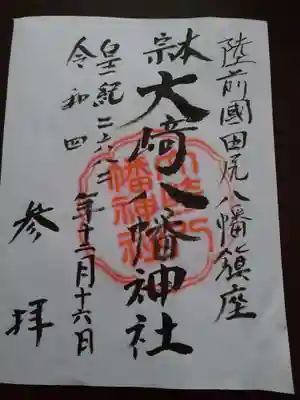 陸前國田尻八幡鎮座
本宗
大崎八幡神社
皇紀二六八二年
令和四年十二月十六日
参拝